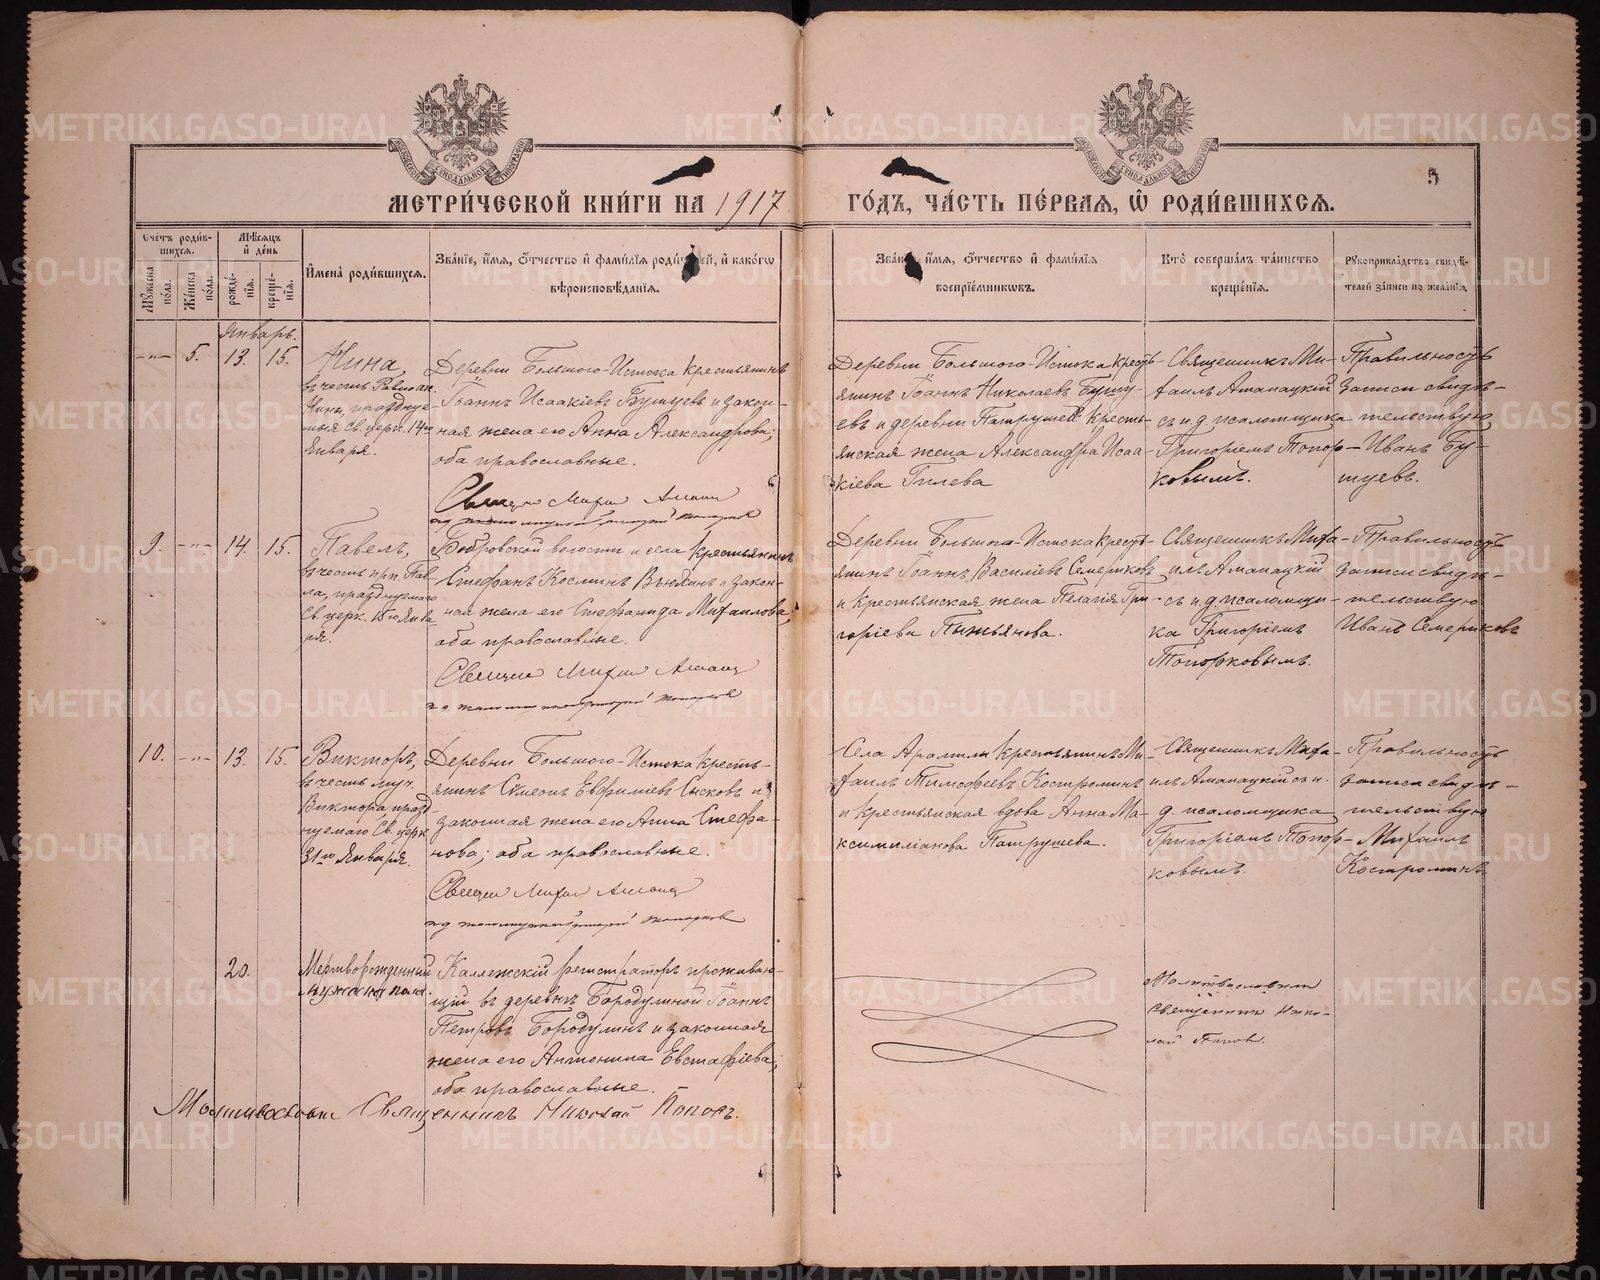 МЕТРИ́ЧЕСКОЙ КНИ́ГИ НА 1917
ГО́ДЪ, ЧА́СТЬ ПЕ́РВАЯ, Ѡ҆ РОДИ́ВШИХСЯ.
5
Сче́тъ роди́вшихся.
Му́жеска по́ла.
Же́нска по́ла.
Мѣ́сяцъ и҆ де́нь
рожде́нїя.
креще́нїя.
И҆мена̀ роди́вшихся.
Зва́нїе, и҆́мя, ѻ҆́тчество и҆ фами́лїя роди́телей, и҆ како́гѡ
вѣроисповѣ́данїя.
Зва́нїе, и҆́мя, ѻ҆́тчество и҆ фами́лїя
воспрїе́мникѡвъ.
Кто̀ соверша́лъ та́инство
креще́нїя.
Рꙋкоприкла́дство свидѣ́-
телей за́писи по жела́нїю.
Январь.
-"- 5. 13. 15.
Нина,
въ честь Равноап.
Нины, празднуе-
мыя Св. церк. 14го
Января.
Деревни Большого-Истока крестьянинъ
Іоаннъ Исаакіевъ Бушуевъ и закон-
ная жена его Анна Александрова;
оба православные.
Деревни Большого-Истока кресть-
янинъ Іоаннъ Николаевъ Бушу-
евъ и деревни Патрушей кресть-
янская жена Александра Исаа-
кіева Гилева
Священникъ Ми-
хаилъ Аманацкій
съ и.д. псаломщика
Григоріемъ Топор-
ковымъ.
Правильность
записи свидѣ-
тельствую
Иванъ Бу-
шуевъ.
9. -"- 14. 15.
Павелъ,
въ честь прп. Пав-
ла, празднуемаго
Св. церк. 15го Янва-
ря.
Бобровской волости и села крестьянинъ
Стефанъ Косминъ Вяндинъ и закон-
ная жена его Стефанида Михаилова,
оба православные.
Деревни Большого-Истока кресть-
янинъ Іоаннъ Василіевъ Семериковъ
и крестьянская жена Пелагія Гри-
горіева Пыжьянова.
Священникъ Миха-
илъ Аманацкій
съ и.д. псаломщи-
ка Григоріемъ
Топорковымъ.
Правильность
записи свидѣ-
тельствую
Иванъ Семериковъ
10. -"- 13. 15.
Викторъ,
въ честь муч.
Виктора, празд-
нуемаго Св. церк
31го Января.
Деревни Большого-Истока кресть-
янинъ Сѵмеонъ Евфиміевъ Сысковъ и
законная жена его Анна Стефа-
нова; оба православные.
Села Арамили крестьянинъ Ми-
хаилъ Тимофеевъ Костроминъ
и крестьянская вдова Анна Ма-
ксимиліанова Патрушева.
Священникъ Миха-
илъ Аманацкій съ и.
д. псаломщика
Григоріемъ Топор-
ковымъ.
Правильность
записи свидѣ-
тельствую
Михаилъ
Костроминъ
20.
Мертворожденный
мужска пола.
Коллежскій регистраторъ проживаю-
щій въ деревнѣ Бородулиной Іоаннъ
Петровъ Бородулинъ и законная
жена его Антонина Евстафіева;
оба православные.
Молитвословилъ
священникъ Нико-
лай Поповъ.
Молитвословилъ Священникъ Николай Поповъ.
METRIKI.GASO-URAL.RU